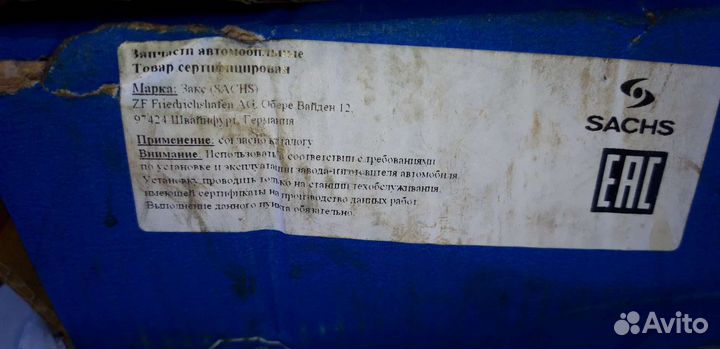 Запчасти автомобильные
Товар сертифицирован
Марка: Закс (SACHS)
ZF Friedrichshafen AG, Обере Вайден 12,
97424 Швайнфурт, Германия
Применение: согласно каталогу
Внимание: Использовать в соответствии с требованиями
по установке и эксплуатации завода-изготовителя автомобиля.
Установку проводить только на станции техобслуживания,
имеющей сертификаты на производство данных работ.
Выполнение данного пункта обязательно.
SACHS
EAC
Avito